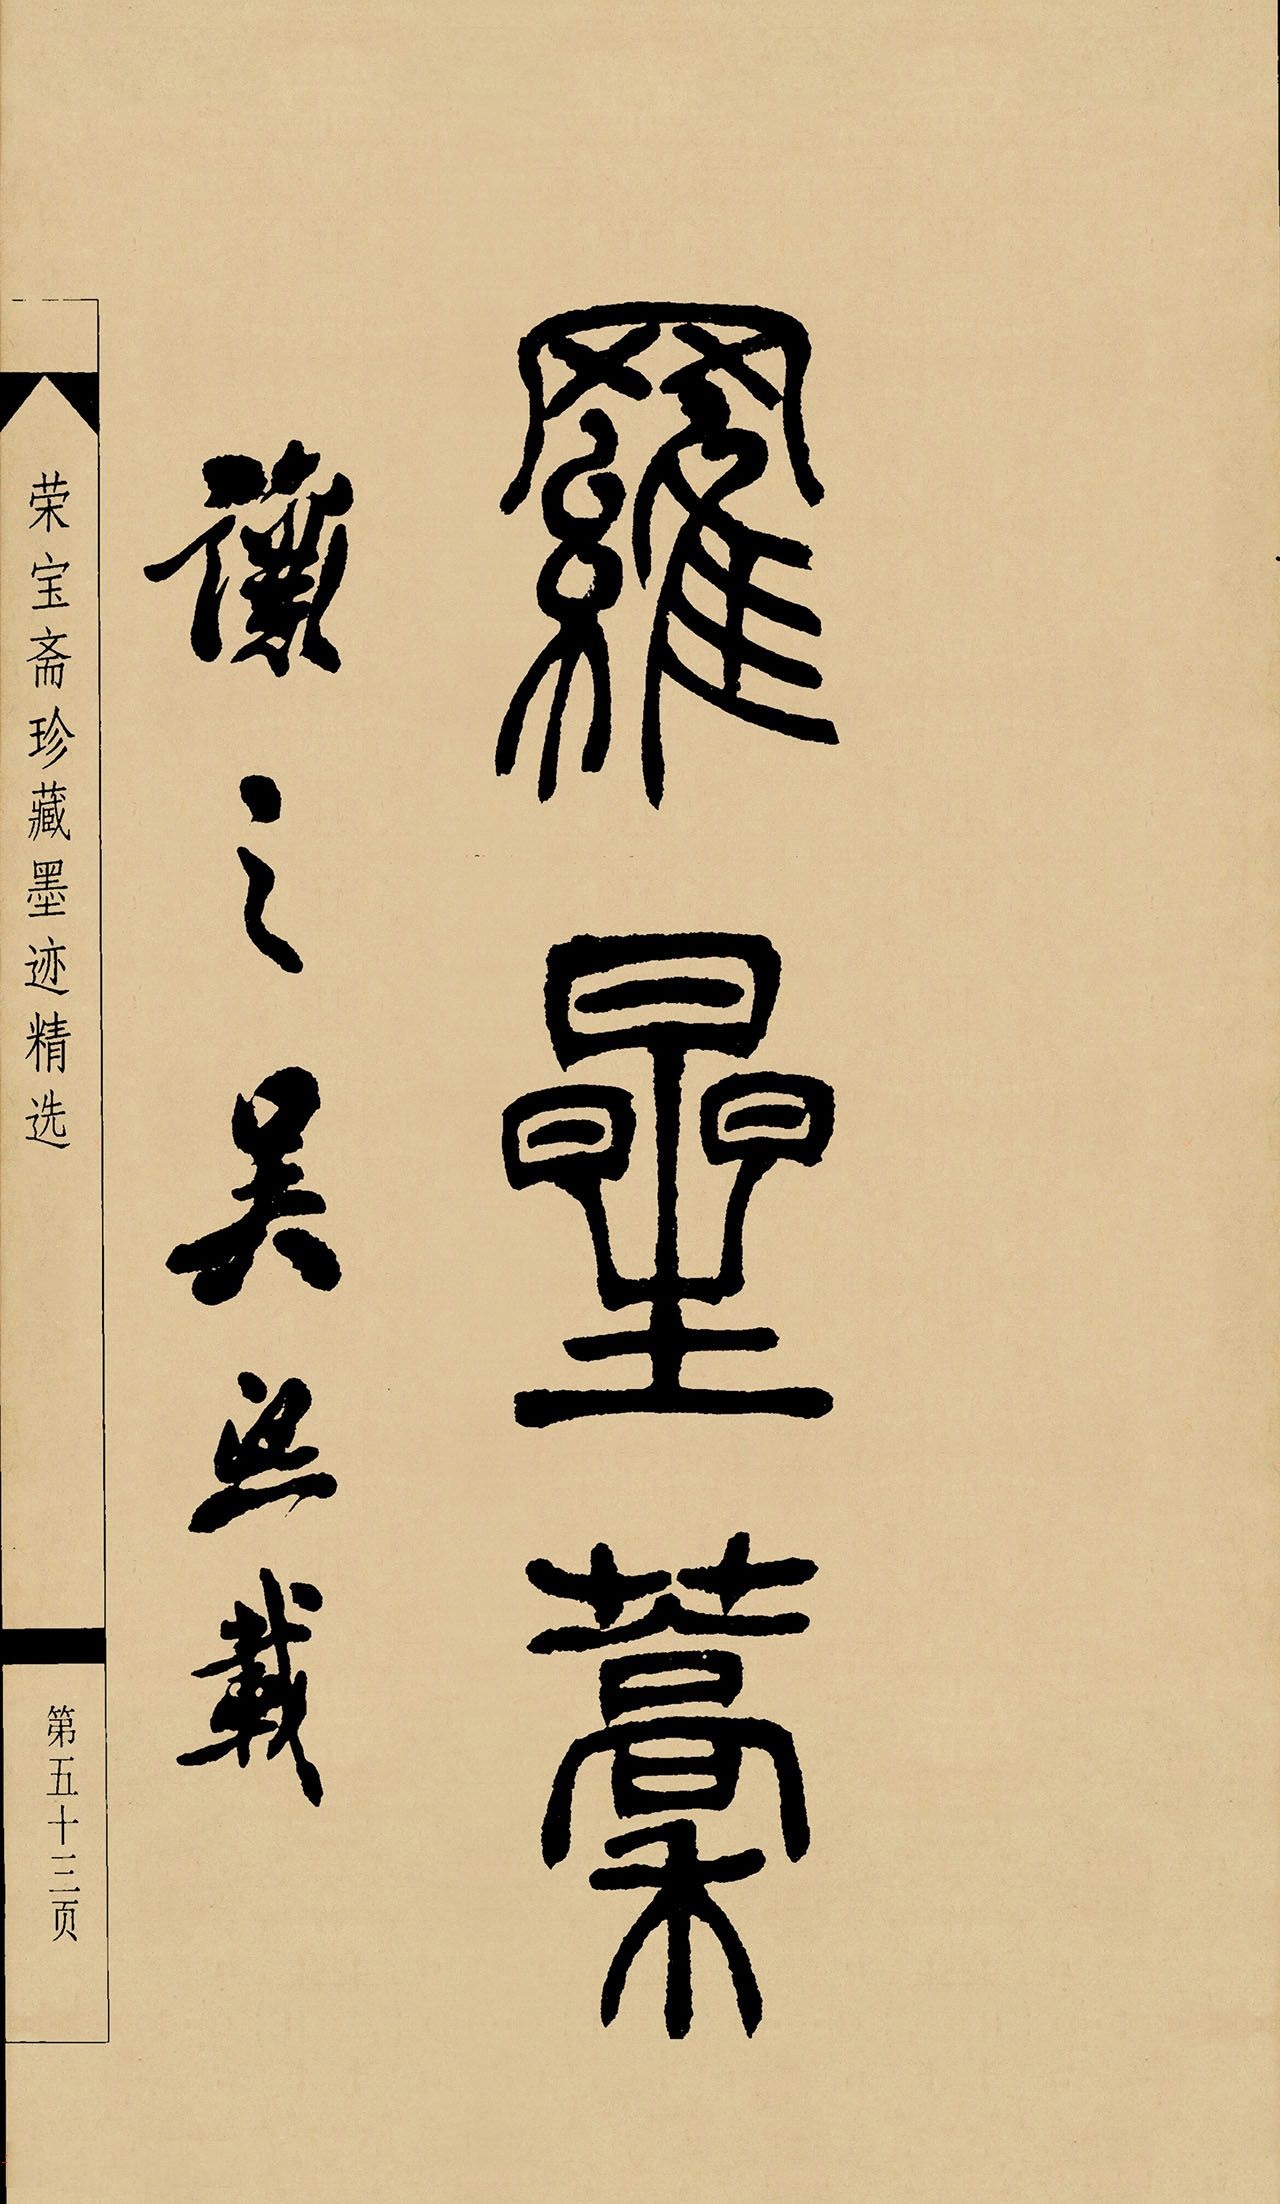 羅曐藳
讓之吳熙載
荣宝斋珍藏墨迹精选
第五十三页